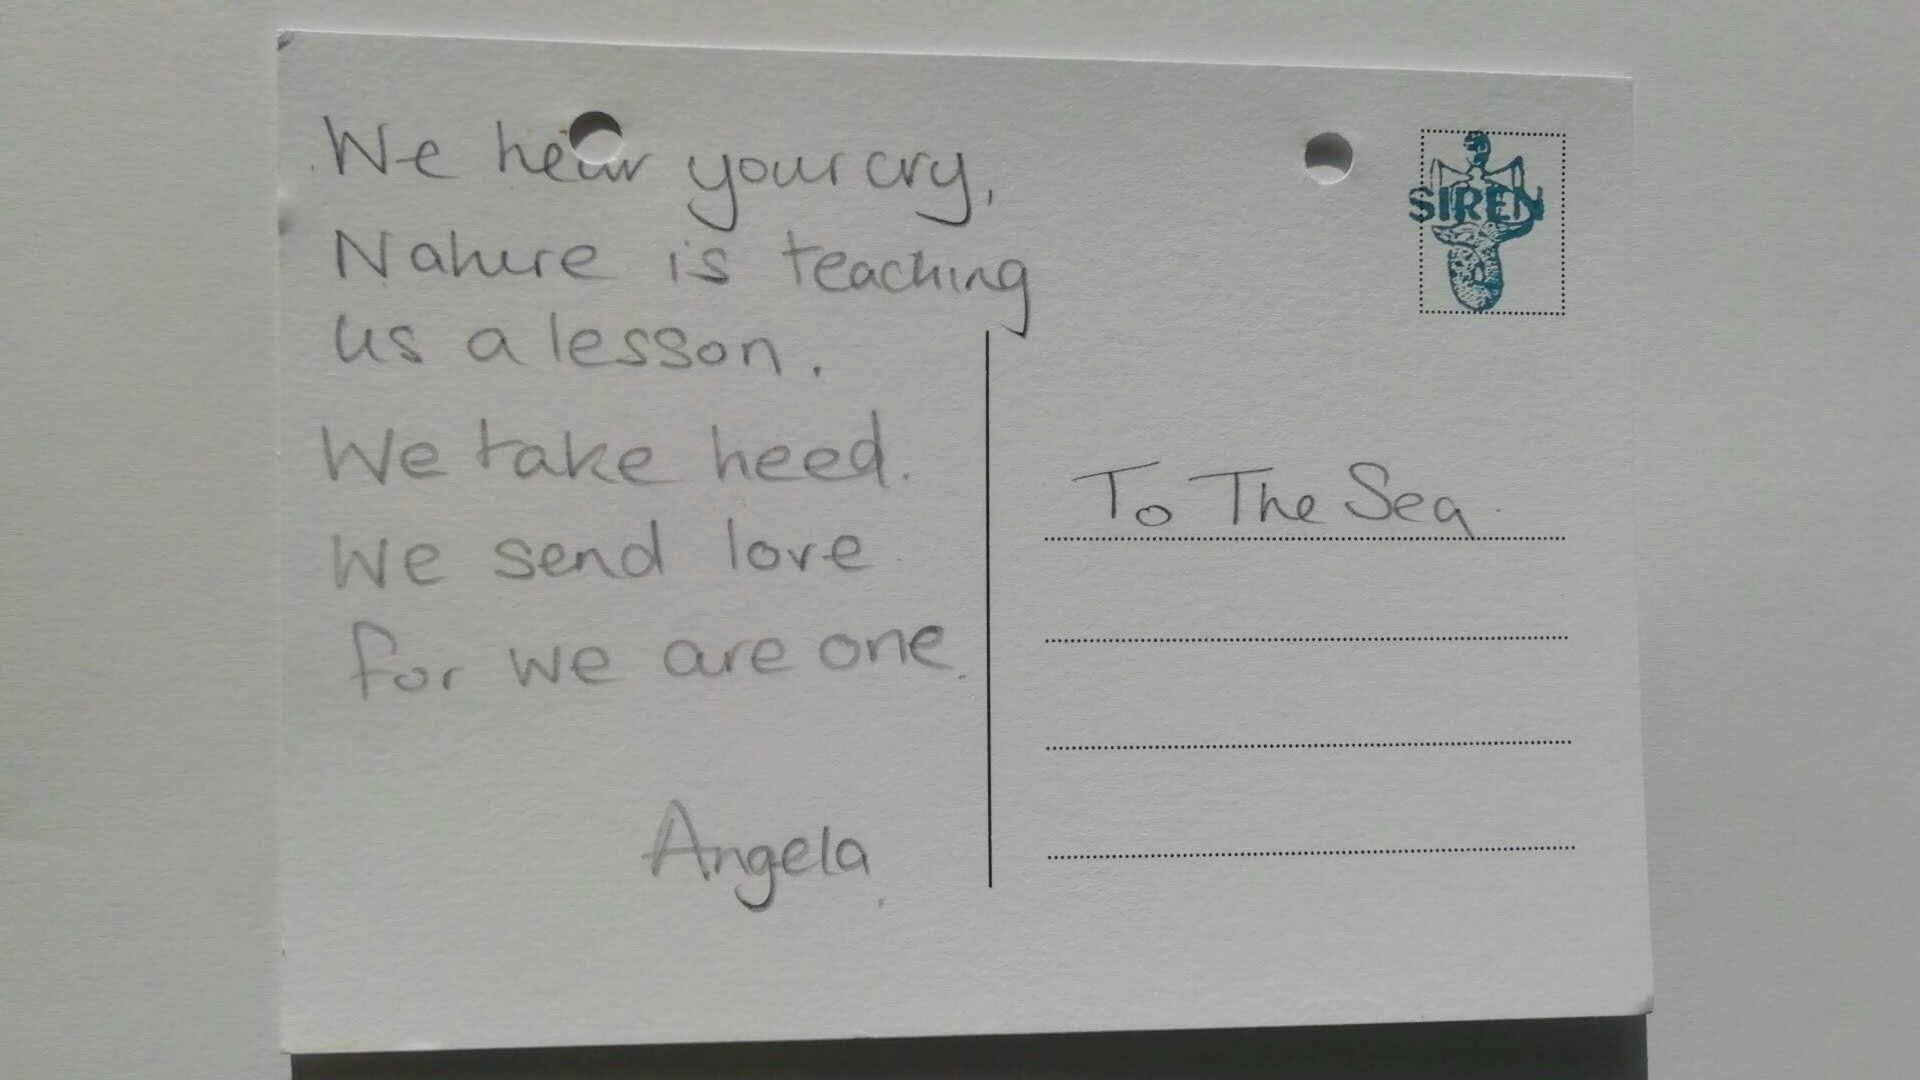 We hear your cry,
Nature is teaching
us a lesson.
We take heed.
We send love
for we are one.
Angela.
SIREN
To The Sea